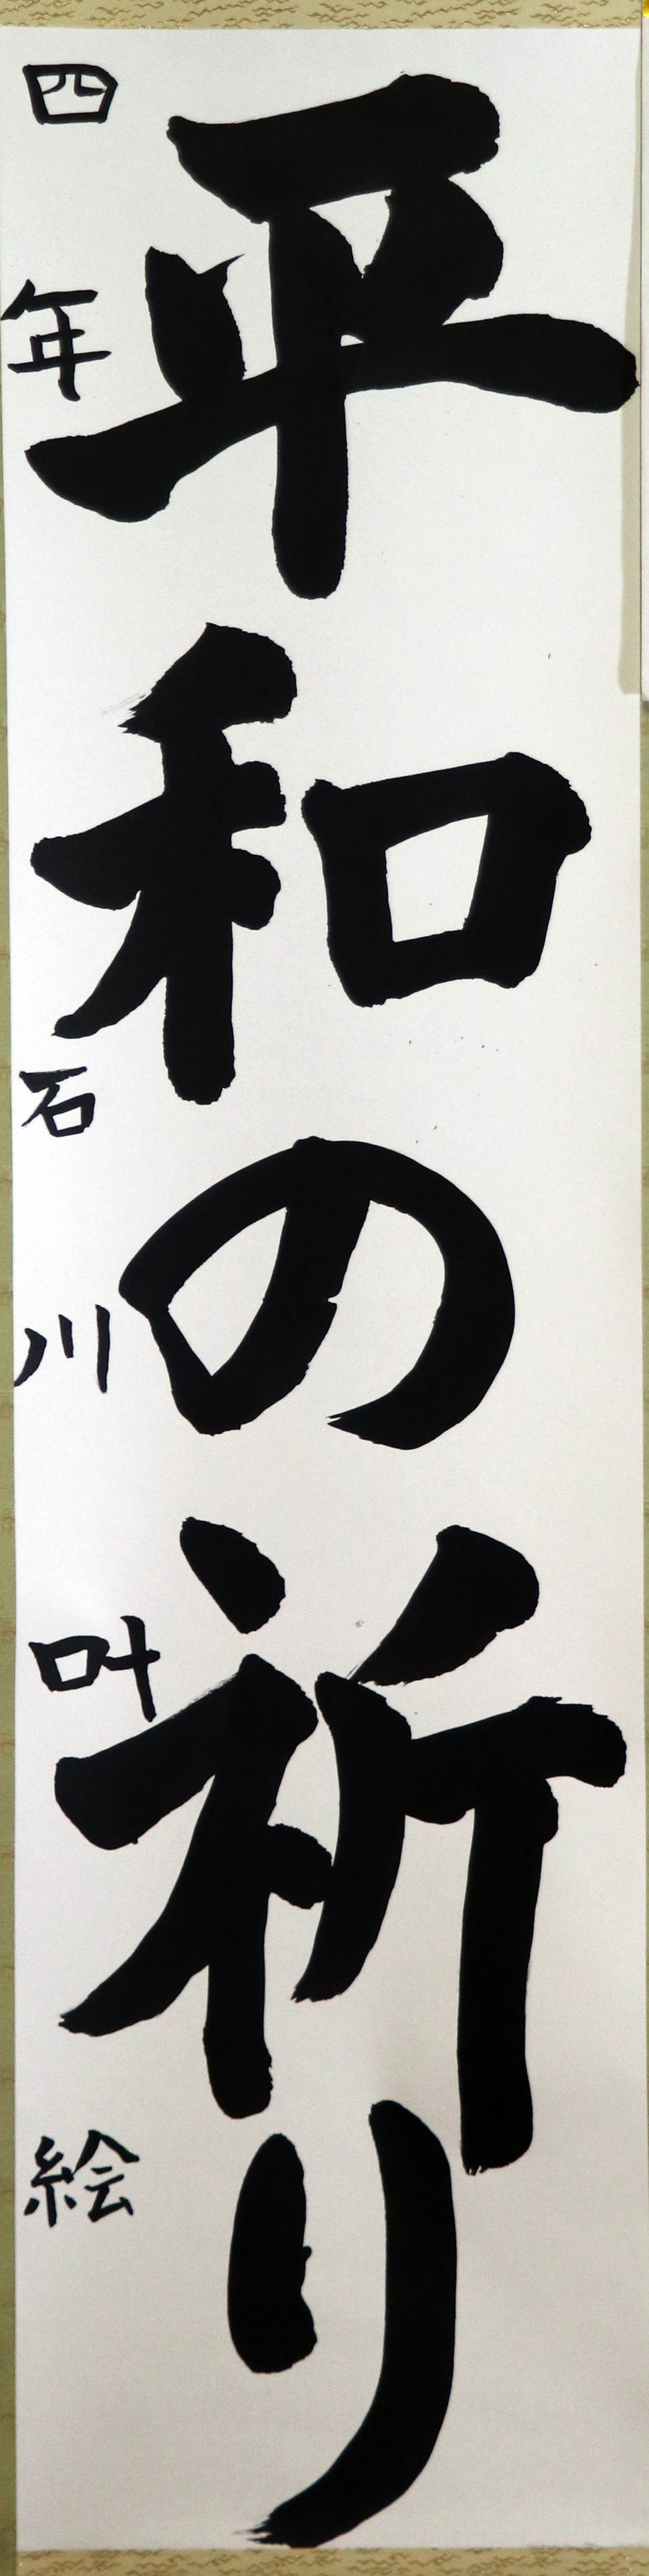 平和の祈り
四年 石川叶絵